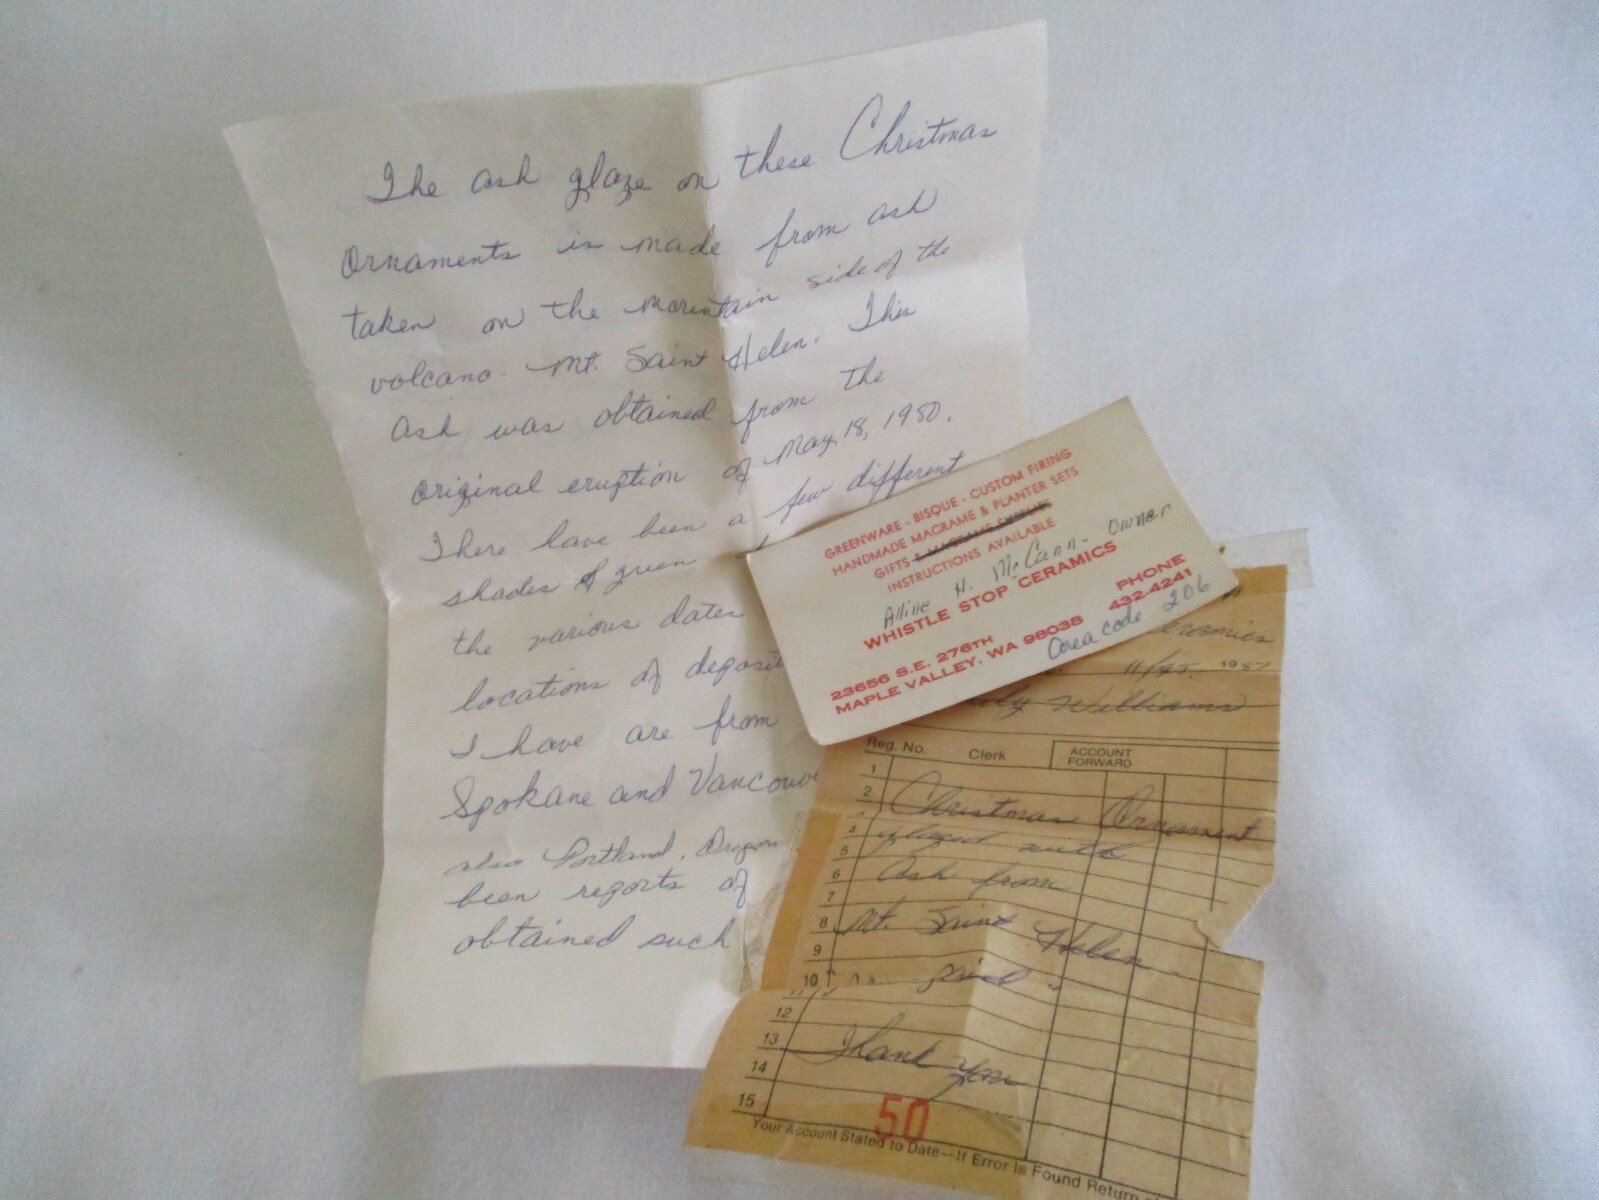 The ash glaze on these Christmas
Ornaments is made from ash
taken on the mountain side of the
volcano Mt. Saint Helen. This
ash was obtained from the
original eruption of May 18, 1980.
There have been a few different
shades of green
the various dates
locations of deposit
I have are from
Spokane and Vancouve
also Portland, Oregon
been reports of
obtained such
GREENWARE - BISQUE - CUSTOM FIRING
HANDMADE MACRAME & PLANTER SETS
GIFTS & MACRAME SUPPLIES
INSTRUCTIONS AVAILABLE
Alline H. McCann - Owner
WHISTLE STOP CERAMICS
23656 S.E. 276TH
MAPLE VALLEY, WA 98038
PHONE
432-4241
Area code 206
eramics
1981
Williams
Reg. No. Clerk ACCOUNT FORWARD
1
2 Christmas Ornament
4 glazed with
5
6 Ash from
7
8 Mt. Saint Helen
9
10 paid
12
13 Thank You
14
15
50
Your Account Stated to Date—If Error Is Found Return